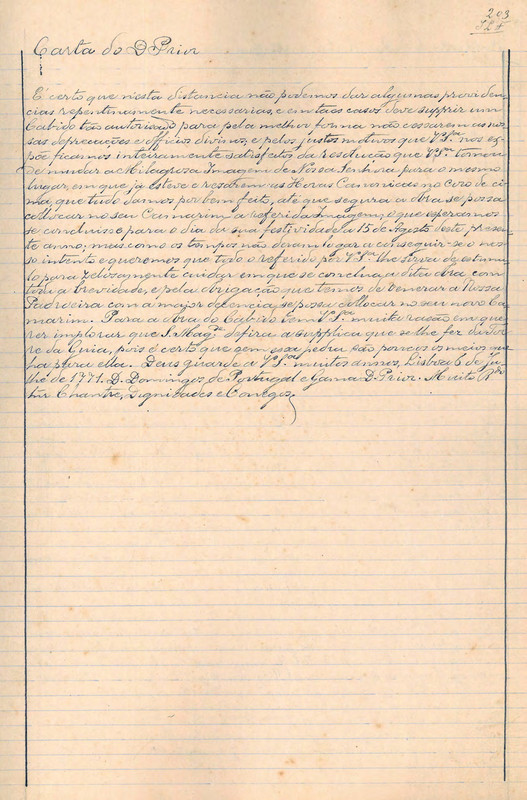 203
Carta do D. Prior
É certo que n'esta distancia não podemos dar algumas providen-
cias repentinamente necessarias, e em taes casos deve supprir um
Cabido tão autorisado para pela melhor forma não cessarem as nos-
sas deprecações e officios divinos, e pelos justos motivos que V.Sªs. nos ex-
põe ficamos inteiramente satisfeitos da resolução que V.Sªs. tomou
de mudar a Milagrosa Imagem de Nossa Senhora para o mesmo
lugar, em que já esteve e resarem as Horas Canonicas no Coro de ci-
ma, que tudo damos por bem feito, até que segura a obra se possa
collocar no seu Camarim a referida Imagem, o que esperamos
se concluisse para o dia da sua festividade a 15 de Agosto deste presen-
te anno; mas como os tempos não deram logar a conseguir-se o nos-
so intento e queremos que todo o referido por V.Sªs. lhe sirva de estimu-
lo para zelosamente cuidar em que se conclua a dita obra com
toda a brevidade, e pela obrigação que temos de venerar a Nossa
Padroeira com a major decencia, se possa collocar no seu novo Ca-
marim. Para a obra do Cabido tem V.Sªs. muita rasão em que-
rer implorar que S. Magde. defira a supplica que se lhe fez da Tor-
re da Guia, pois é certo que sem essa pedra são poucos os meios
para ella. Deus guarde a V.Sªs. muitos annos, Lisboa 6 de Ju-
lho de 1771. D. Domingos de Portugal e Gama D. Prior. Muito Rdo.
Snr. Chantre, Dignidades e Conegos.